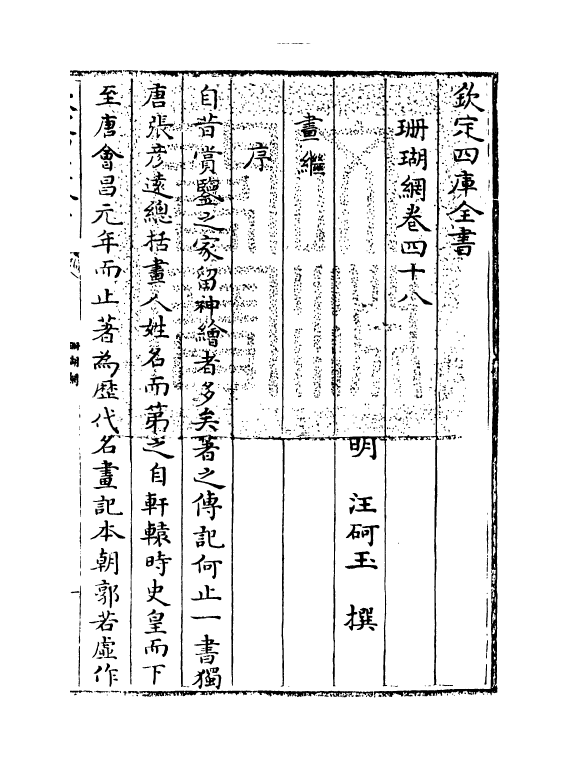 欽定四庫全書
珊瑚網卷四十八
明 汪砢玉 撰
畫繼
序
自昔賞鑒之家留神繪者多矣著之傳記何止一書獨
唐張彦逺總括畫人姓名而第之自軒轅時史皇而下
至唐會昌元年而止著為歴代名畫記本朝郭若虚作
珊瑚網